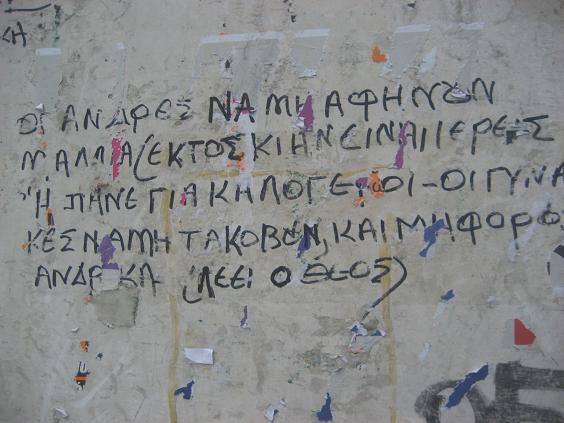 ΚΗ
ΟΙ ΑΝΔΡΕΣ ΝΑ ΜΗ ΑΦΗΝΟΝ
ΜΑΛΛΙΑ (ΕΚΤΟΣ ΚΙ ΗΝ ΕΙΝΑΙ ΙΕΡΕΙΣ
Ή ΠΗΝΕ ΓΙΑ ΚΗΛΟΓΕΡΟΙ - ΟΙ ΓΥΝΑ
ΚΕΣ ΝΑ ΜΗ ΤΑ ΚΟΒΟΝ, ΚΑΙ ΜΗ ΦΟΡΟΝ
ΑΝΔΡΙΚΑ (ΛΕΕΙ Ο ΘΕΟΣ)